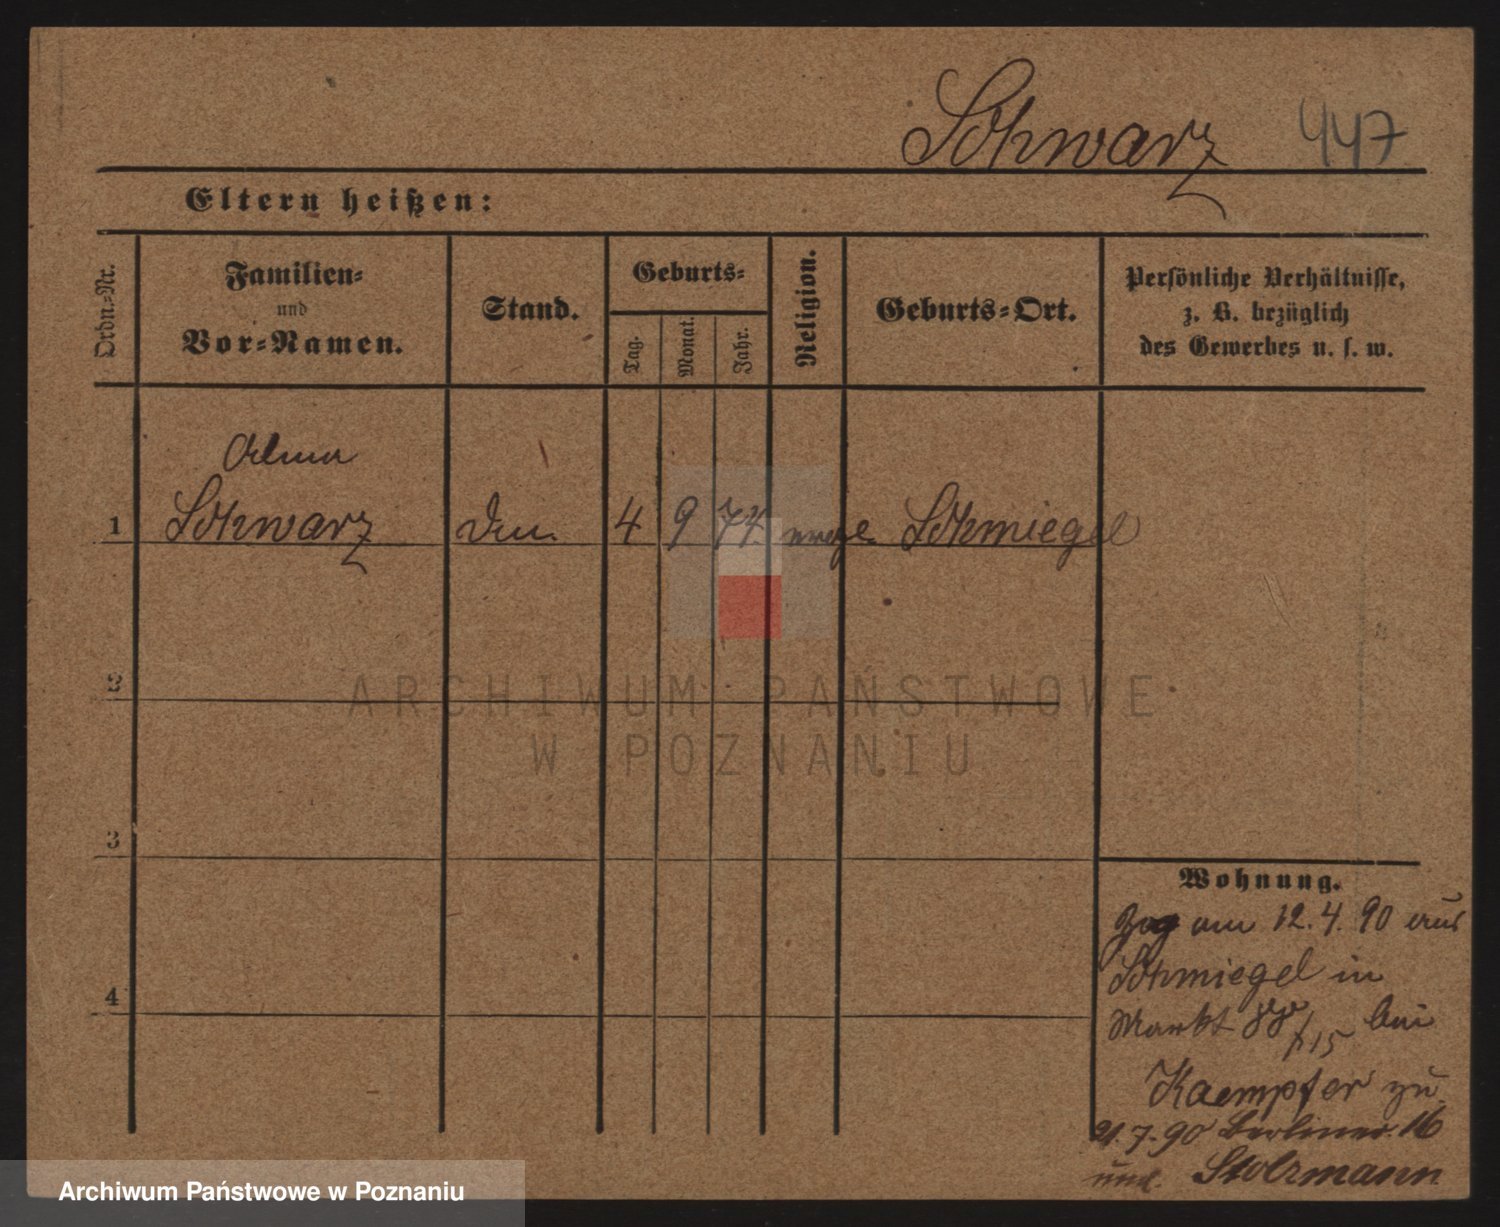 Schwarz 447
Eltern heißen:
Ordn.-Nr.
Familien-
und
Vor-Namen.
Stand.
Geburts-
Tag.
Monat.
Jahr.
Religion.
Geburts-Ort.
Persönliche Verhältnisse,
z. B. bezüglich
des Gewerbes u. s. w.
Alma
1 Schwarz 4 9 74 Schmiegel
2
3
4
Wohnung.
Zog am 12.4.90 aus
Schmiegel in
Markt 15 bei
Kaempfer zu.
21.7.90 Berliner. 16
Stolzmann
ARCHIWUM PAŃSTWOWE
W POZNANIU
Archiwum Państwowe w Poznaniu